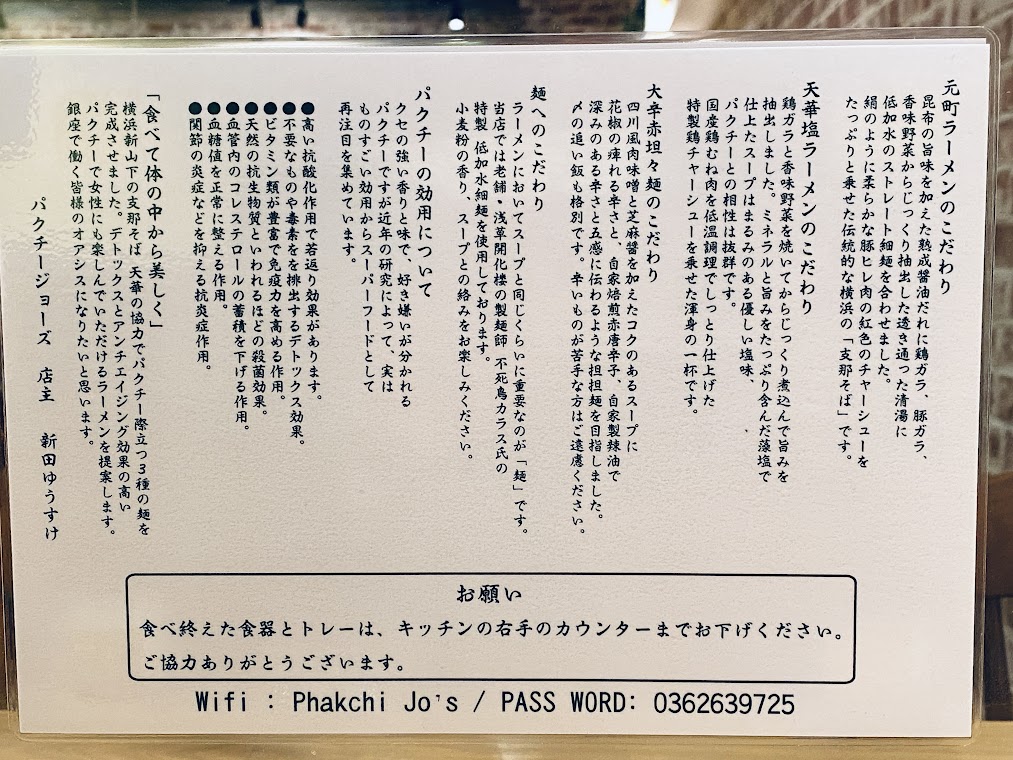 元町ラーメンのこだわり
昆布の旨味を加えた熟成醤油だれに鶏ガラ、豚ガラ、
香味野菜からじっくり抽出した透き通った清湯に
低加水のストレート細麺を合わせました。
絹のように柔らかな豚ヒレ肉の紅色のチャーシューを
たっぷりと乗せた伝統的な横浜の「支那そば」です。
天華塩ラーメンのこだわり
鶏ガラと香味野菜を焼いてからじっくり煮込んで旨みを
抽出しました。ミネラルと旨みをたっぷり含んだ藻塩で
仕上たスープはまるみのある優しい塩味、
パクチーとの相性は抜群です。
国産鶏むね肉を低温調理でしっとり仕上げた
特製鶏チャーシューを乗せた渾身の一杯です。
大辛赤坦々麺のこだわり
四川風肉味噌と芝麻醤を加えたコクのあるスープに
花椒の痺れる辛さと、自家焙煎赤唐辛子、自家製辣油で
深みのある辛さと五感に伝わるような担担麺を目指しました。
〆の追い飯も格別です。辛いものが苦手な方はご遠慮ください。
麺へのこだわり
ラーメンにおいてスープと同じくらいに重要なのが「麺」です。
当店では老舗・浅草開化楼の製麺師 不死鳥カラス氏の
特製 低加水細麺を使用しております。
小麦粉の香り、スープとの絡みをお楽しみください。
パクチーの効用について
クセの強い香りと味で、好き嫌いが分かれる
パクチーですが近年の研究によって、実は
ものすごい効用からスーパーフードとして
再注目を集めています。
●高い抗酸化作用で若返り効果があります。
●不要なものや毒素をを排出するデトックス効果。
●ビタミン類が豊富で免疫力を高める作用。
●天然の抗生物質といわれるほどの殺菌効果。
●血管内のコレステロールの蓄積を下げる作用。
●血糖値を正常に整える作用。
●関節の炎症などを抑える抗炎症作用。
「食べて体の中から美しく」
横浜新山下の支那そば 天華の協力でパクチー際立つ3種の麺を
完成させました。デトックスとアンチエイジング効果の高い
パクチーで女性にも楽しんでいただけるラーメンを提案します。
銀座で働く皆様のオアシスになりたいと思います。
パクチージョーズ 店主 新田ゆうすけ
お願い
食べ終えた食器とトレーは、キッチンの右手のカウンターまでお下げください。
ご協力ありがとうございます。
Wifi : Phakchi Jo's / PASS WORD: 0362639725